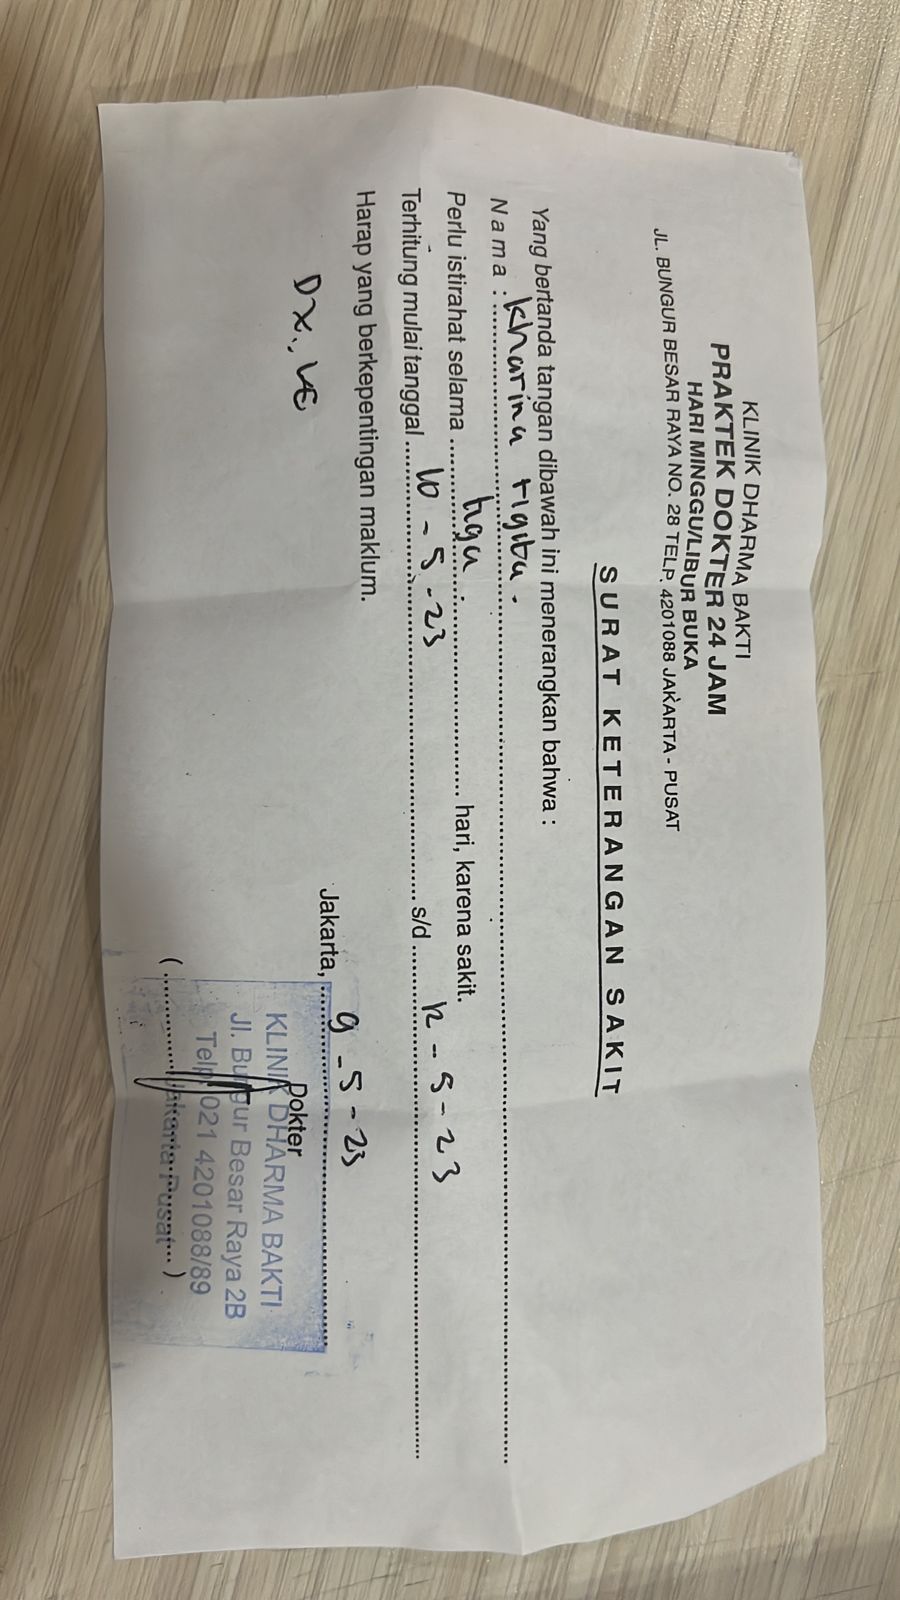 KLINIK DHARMA BAKTI
PRAKTEK DOKTER 24 JAM
HARI MINGGU/LIBUR BUKA
JL. BUNGUR BESAR RAYA NO. 28 TELP. 4201088 JAKARTA - PUSAT
SURAT KETERANGAN SAKIT
Yang bertanda tangan dibawah ini menerangkan bahwa :
Nama : Kharina rigita.
Perlu istirahat selama tiga hari, karena sakit.
Terhitung mulai tanggal 10 - 5 - 23 s/d 12 - 5 - 23
Harap yang berkepentingan maklum.
Jakarta, 9 - 5 - 23
Dx.
Dokter
KLINIK DHARMA BAKTI
Jl. Bungur Besar Raya 2B
Telp. 021 4201088/89
Jakarta Pusat